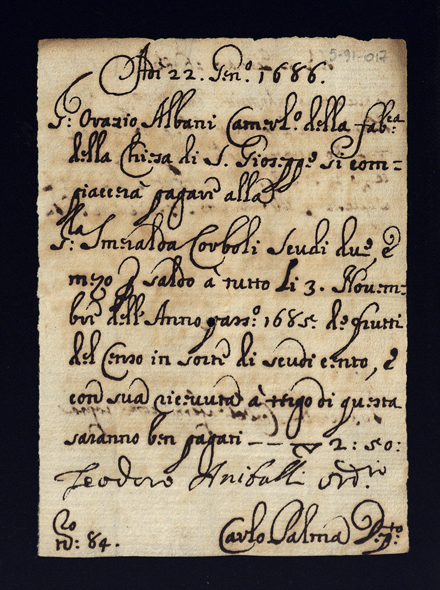 5-91-017
Adi 22. Gen.º 1686.
S.r Orazio Albani Camerl.º della fab.ca
della Chiesa di S. Gioseppe si com=
piacerà pagare alla
S.ra Smeralda Corboli scudi due, e
mezo p saldo à tutto li 3. Novem-
bre dell'Anno pass.º 1685. de frutti
del Censo in sorte di scudi cento, e
con sua ricevuta à tergo di questa
saranno ben pagati —— 2:50:
Teodoro Aniballi
nº: 84. Carlo Palma